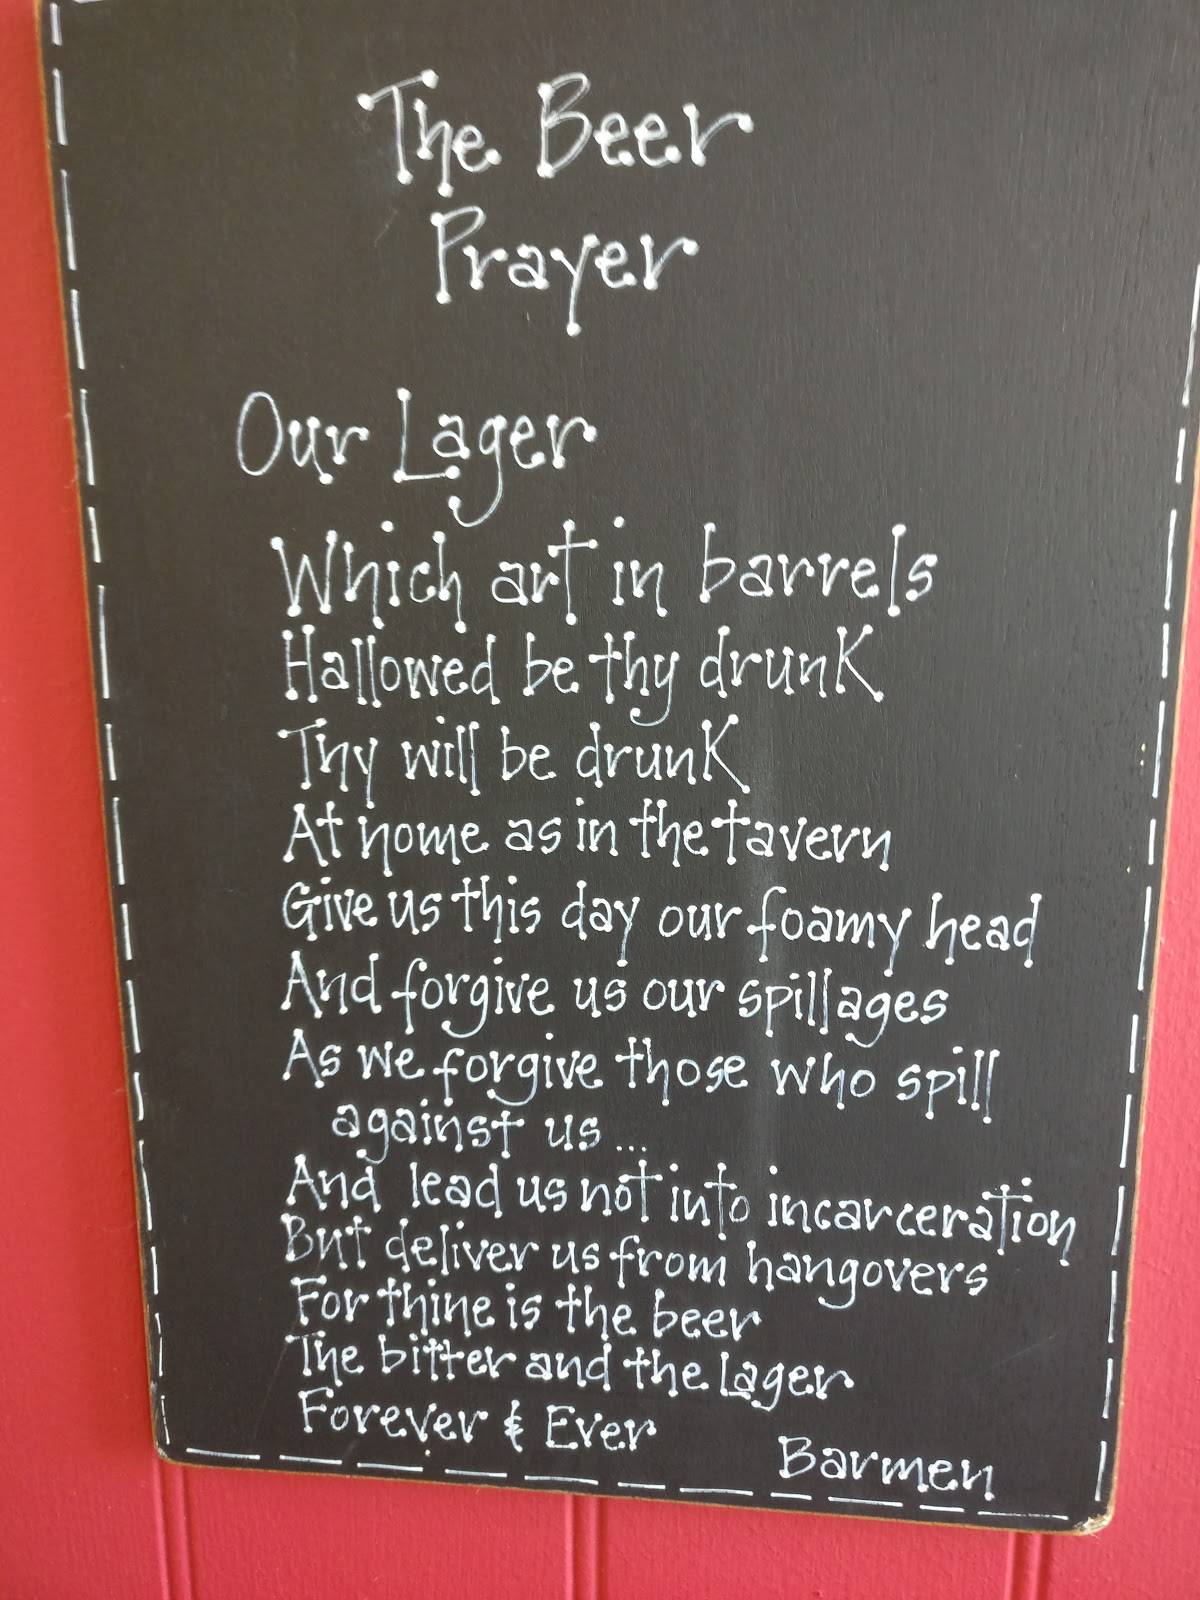 The Beer
Prayer
Our Lager
Which art in barrels
Hallowed be thy drunk
Thy will be drunk
At home as in the tavern
Give us this day our foamy head
And forgive us our spillages
As we forgive those who spill
against us...
And lead us not into incarceration
But deliver us from hangovers
For thine is the beer
The bitter and the Lager
Forever & Ever
Barmen